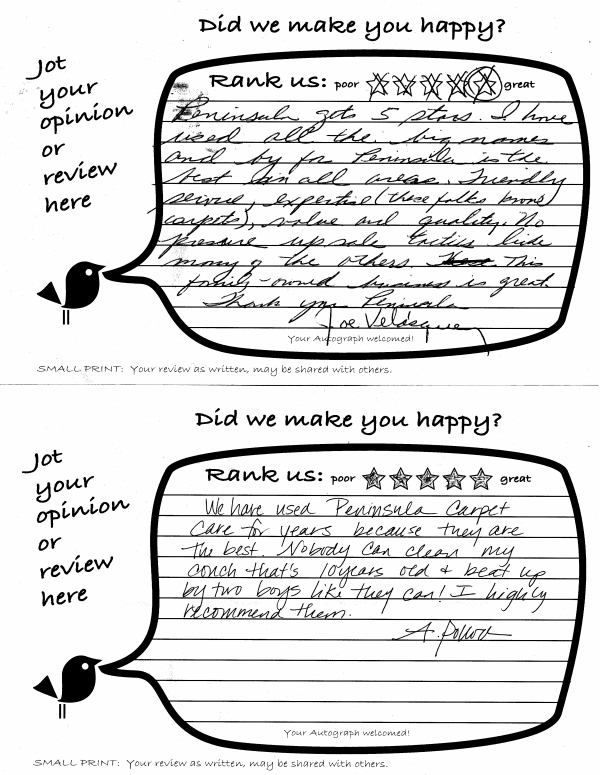 Did we make you happy?
Jot
your
opinion
or
review
here
Rank us: poor great
Peninsula gets 5 stars. I have
used all the big names
and by far Peninsula is the
best in all areas. Friendly
service, expertise (these folks know
carpets), value and quality. No
pressure up sale tactics like
many of the others. This
family-owned business is great.
Thank you Peninsula
Joe Velasquez
Your Autograph welcomed!
SMALL PRINT: Your review as written, may be shared with others.
Did we make you happy?
Jot
your
opinion
or
review
here
Rank us: poor great
We have used Peninsula Carpet
Care for years because they are
the best. Nobody can clean my
couch that's 10 years old & beat up
by two boys like they can! I highly
recommend them.
A. Pollock
Your Autograph welcomed!
SMALL PRINT: Your review as written, may be shared with others.